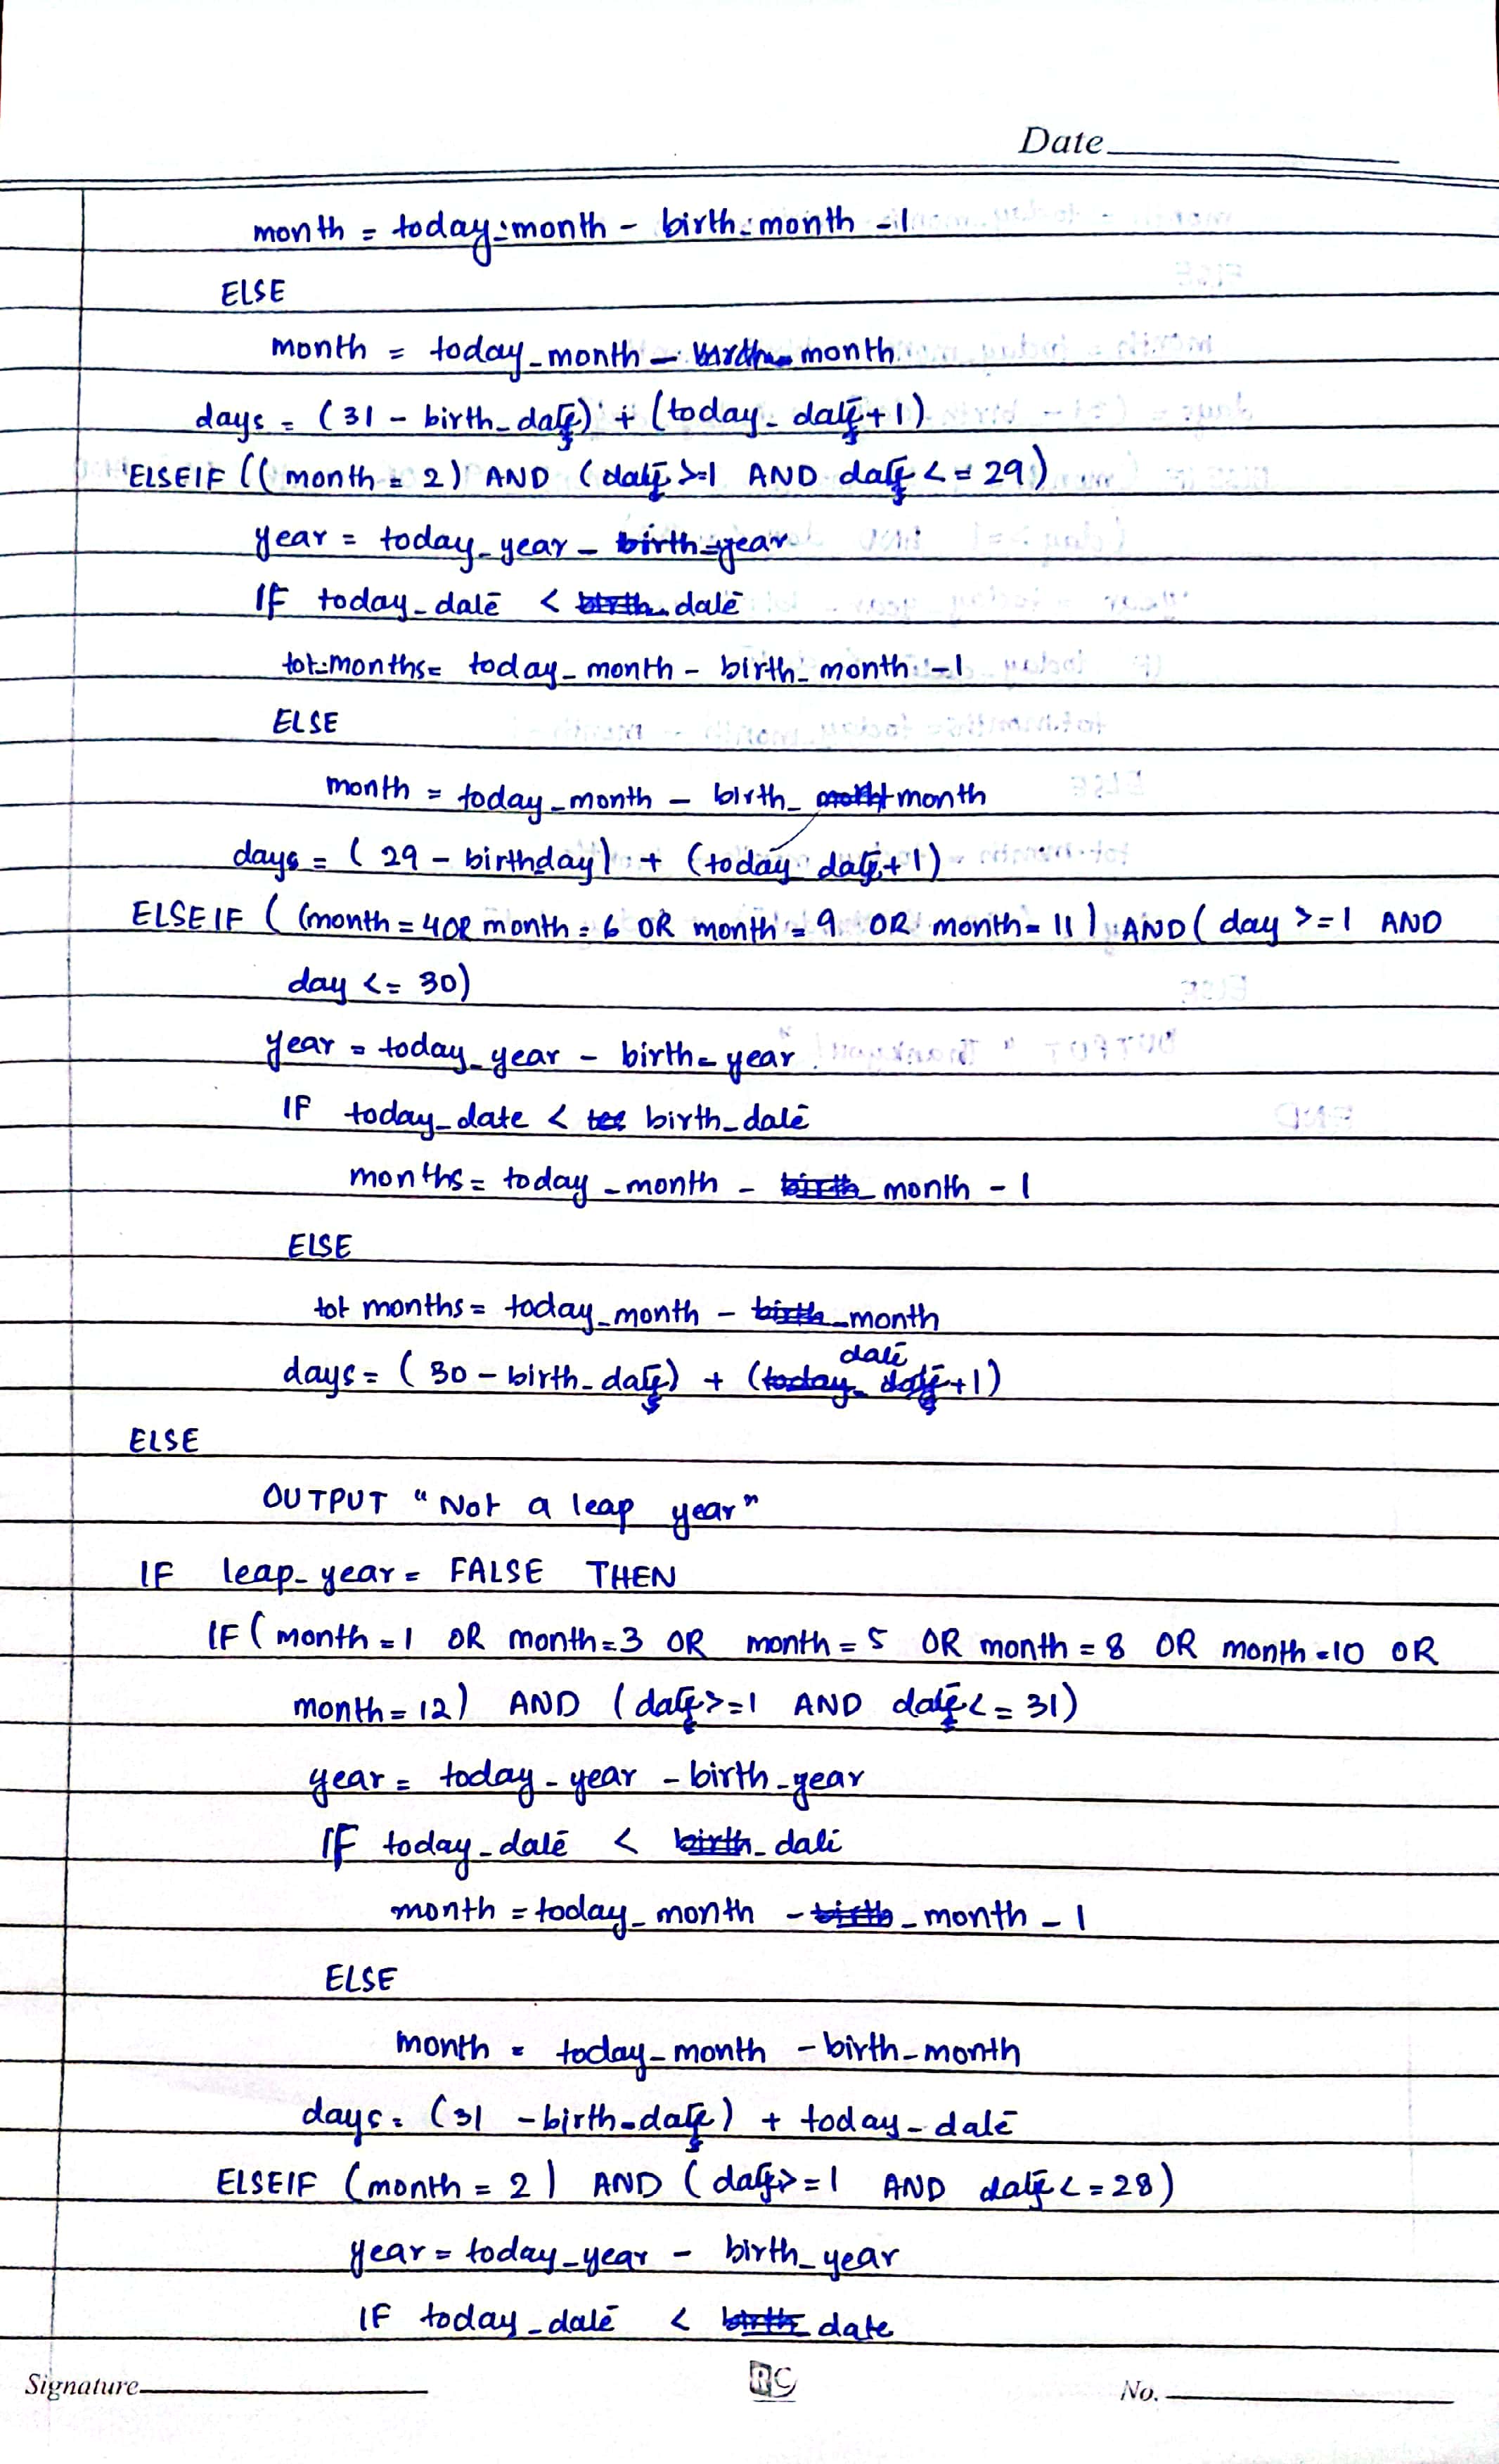 Date
month = today_month - birth_month -1
ELSE
month = today_month - month
days = (31 - birth_date) + (today_date+1)
ELSEIF ((month = 2) AND (date >=1 AND date <= 29)
year = today_year - birth_year
IF today_date < date
tot_months= today_month - birth_month -1
ELSE
month = today_month - birth_ month
days = (29 - birthday) + (today date+1)
ELSEIF ((month = 4 OR month = 6 OR month = 9 OR month = 11) AND (day >=1 AND
day <= 30)
year = today_year - birth_year
IF today_date < birth_date
months = today_month - month - 1
ELSE
tot months = today_month - _month
date
days = (30 - birth_date) + ( +1)
ELSE
OUTPUT "Not a leap year"
IF leap_year = FALSE THEN
IF (month = 1 OR month = 3 OR month = 5 OR month = 8 OR month =10 OR
month = 12) AND (date >=1 AND date <= 31)
year = today_year - birth_year
IF today_date < _date
month = today_month - _month - 1
ELSE
month = today_month - birth_month
days = (31 - birth_date) + today_date
ELSEIF (month = 2) AND (date >=1 AND date <= 28)
year = today_year - birth_year
IF today_date < date
Signature RC No.